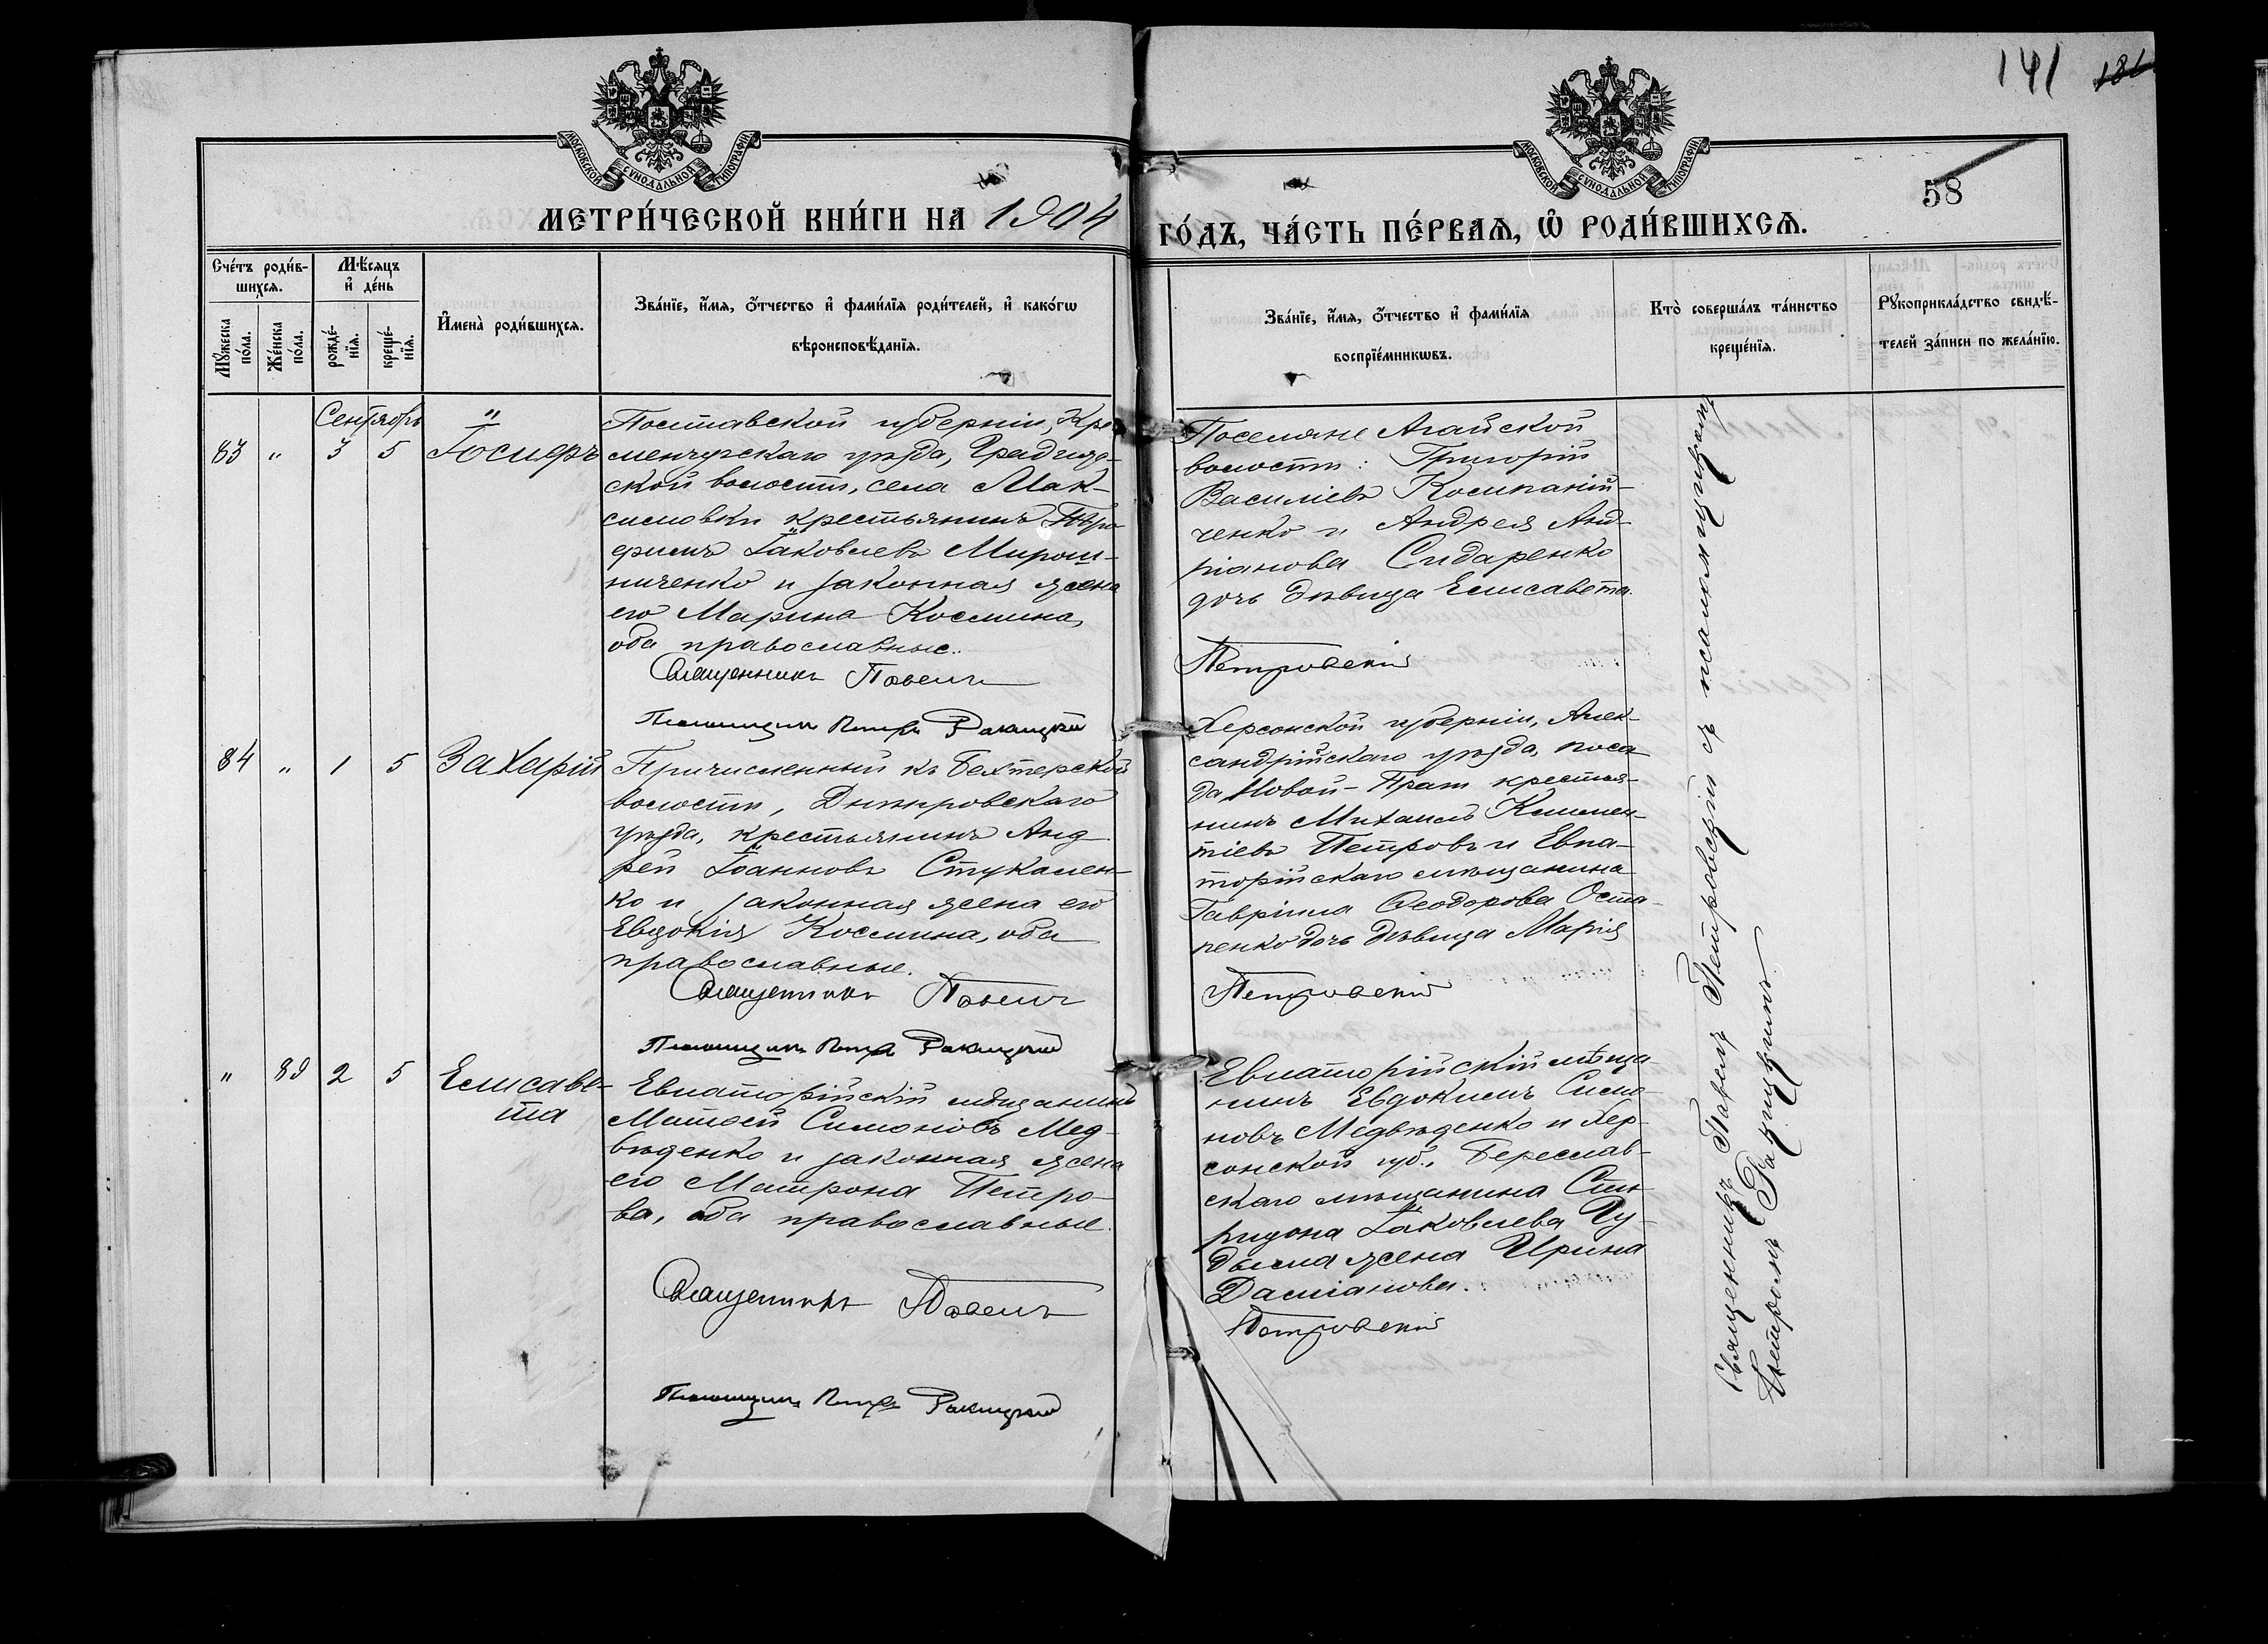 141 181
58
МОСКОВСКОЙ СУНОДАЛЬНОЙ ТИПОГРАФІИ
МОСКОВСКОЙ СУНОДАЛЬНОЙ ТИПОГРАФІИ
МЕТРИ́ЧЕСКОЙ КНИ́ГИ НА 1904
ГО́ДЪ, ЧА́СТЬ ПЕ́РВАѦ, Ѡ҆ РОДИ́ВШИХСѦ.
Сче́тъ роди́в-
шихсѧ.
Мꙋ́жеска по́ла.
Же́нска по́ла.
Мѣ́сѧцъ
и҆ де́нь
рожде́-
нїѧ.
креще́-
нїѧ.
И҆мена̀ роди́вшихсѧ.
Зва́нїе, и҆́мѧ, ѻ҆́тчество и҆ фами́лїѧ роди́телей, и҆ како́гѡ
вѣроисповѣ́данїѧ.
Зва́нїе, и҆́мѧ, ѻ҆́тчество и҆ фами́лїѧ
воспрїе́мникѡвъ.
Кто̀ соверша́лъ та́инство
креще́нїѧ.
Рꙋкоприкла́дство свидѣ́-
телей за́писи по жела́нїю.
Сентябрь
83 " 3 5 Іосифъ
Полтавской губерніи, Кре-
менчугскаго уѣзда, Градиж-
ской волости, села Мак-
симовки крестьянинъ Тро-
фимъ Іаковлевъ Мирош-
ниченко и законная жена
его Марина Космина,
оба православные.
Священникъ Павелъ
Псаломщикъ Петръ Ракицкій
Поселяне Агайской
волости: Григорій
Василіевъ Компаній-
ченко и Андрея Анд-
ріанова Сидаренко
дочь дѣвица Елисавета.
Петровскій
84 " 1 5 Захарій
Причисленный къ Бехтерской
волости, Днѣпровскаго
уѣзда, крестьянинъ Анд
рей Іоанновъ Стукален-
ко и законная жена его
Евдокія Космина, оба
православные.
Священникъ Павелъ
Псаломщикъ Петръ Ракицкій
Херсонской губерніи, Алек-
сандрійскаго уѣзда, поса
да Новой-Праги крестья-
нинъ Михаилъ Климен-
тіевъ Петровъ и Евпа-
торійскаго мѣщанина
Гавріила Ѳеодорова Оста-
пенко дочь дѣвица Марія
Петровскій
" 89 2 5 Елисаве-
та
Евпаторійскій мѣщанинъ
Матѳей Симоновъ Мед-
вѣденко и законная жена
его Матрона Петро-
ва, оба православные.
Священникъ Павелъ
Псаломщикъ Петръ Ракицкій
Евпаторійскій мѣща-
нинъ Евдокимъ Симо-
новъ Медвѣденко и Хер-
сонской губ., Береслав-
скаго мѣщанина Спи-
ридона Іаковлева Гу-
дыма жена Ирина
Даміанова.
Петровскій
Священникъ Павелъ Петровскій съ псаломщикомъ
Петромъ Ракицкимъ